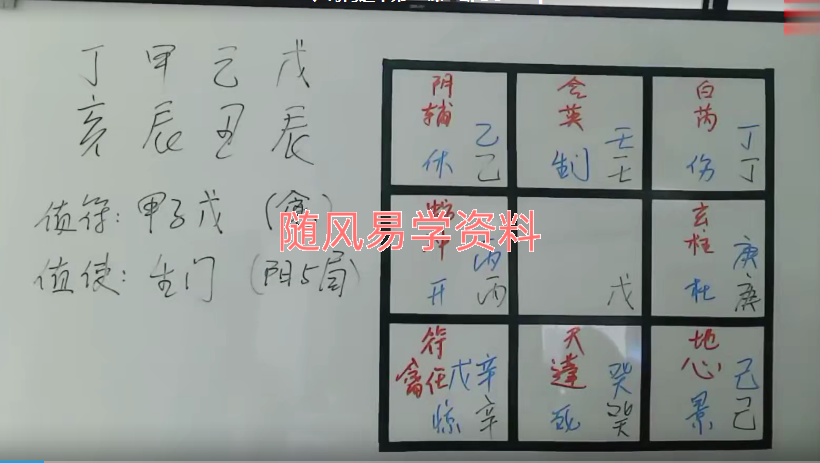 丁 甲 己 戊
亥 辰 丑 辰
值符: 甲子戊 (禽)
值使: 生门 (阴5局)
随风易学资料
阴
辅 乙
休 乙
合
英 壬
生 壬
白
芮 丁
伤 丁
丙
开 丙
戊
玄
柱 庚
杜 庚
符
禽 任 戊 辛
惊 辛
天
蓬 癸
死 癸
地
心 己
景 己